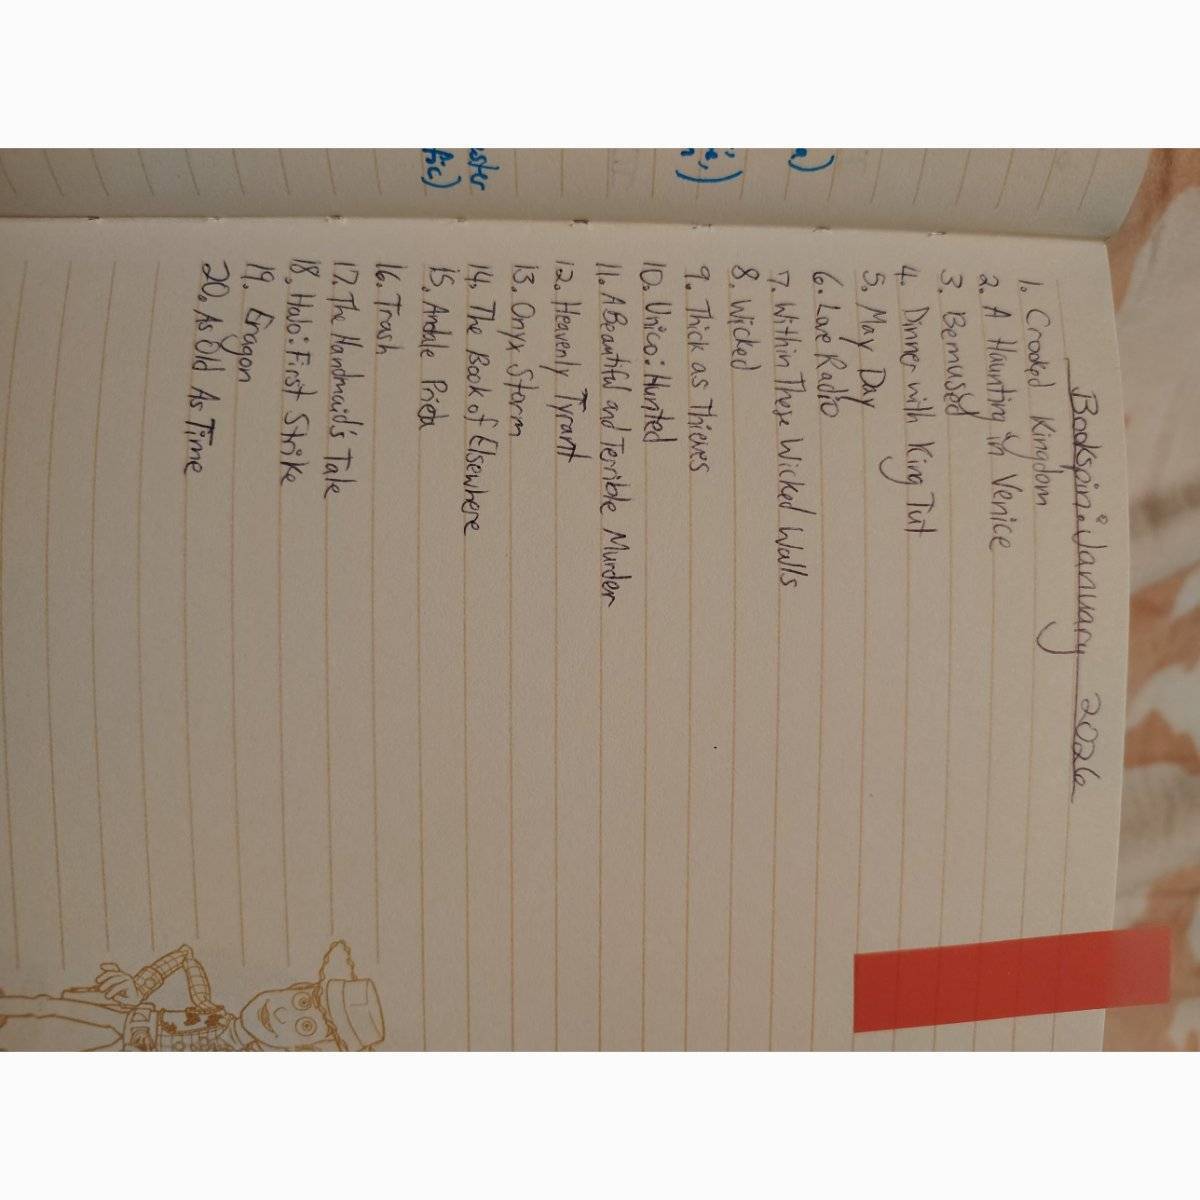 Bookspin: January 2026
1. Crooked Kingdom
2. A Haunting in Venice
3. Bemused
4. Dinner with King Tut
5. May Day
6. Love Radio
7. Within These Wicked Walls
8. Wicked
9. Thick as Thieves
10. Unico: Hunted
11. A Beautiful and Terrible Murder
12. Heavenly Tyrant
13. Onyx Storm
14. The Book of Elsewhere
15. Andale Prieta
16. Trash
17. The Handmaid's Tale
18. Halo: First Strike
19. Eragon
20. As Old As Time